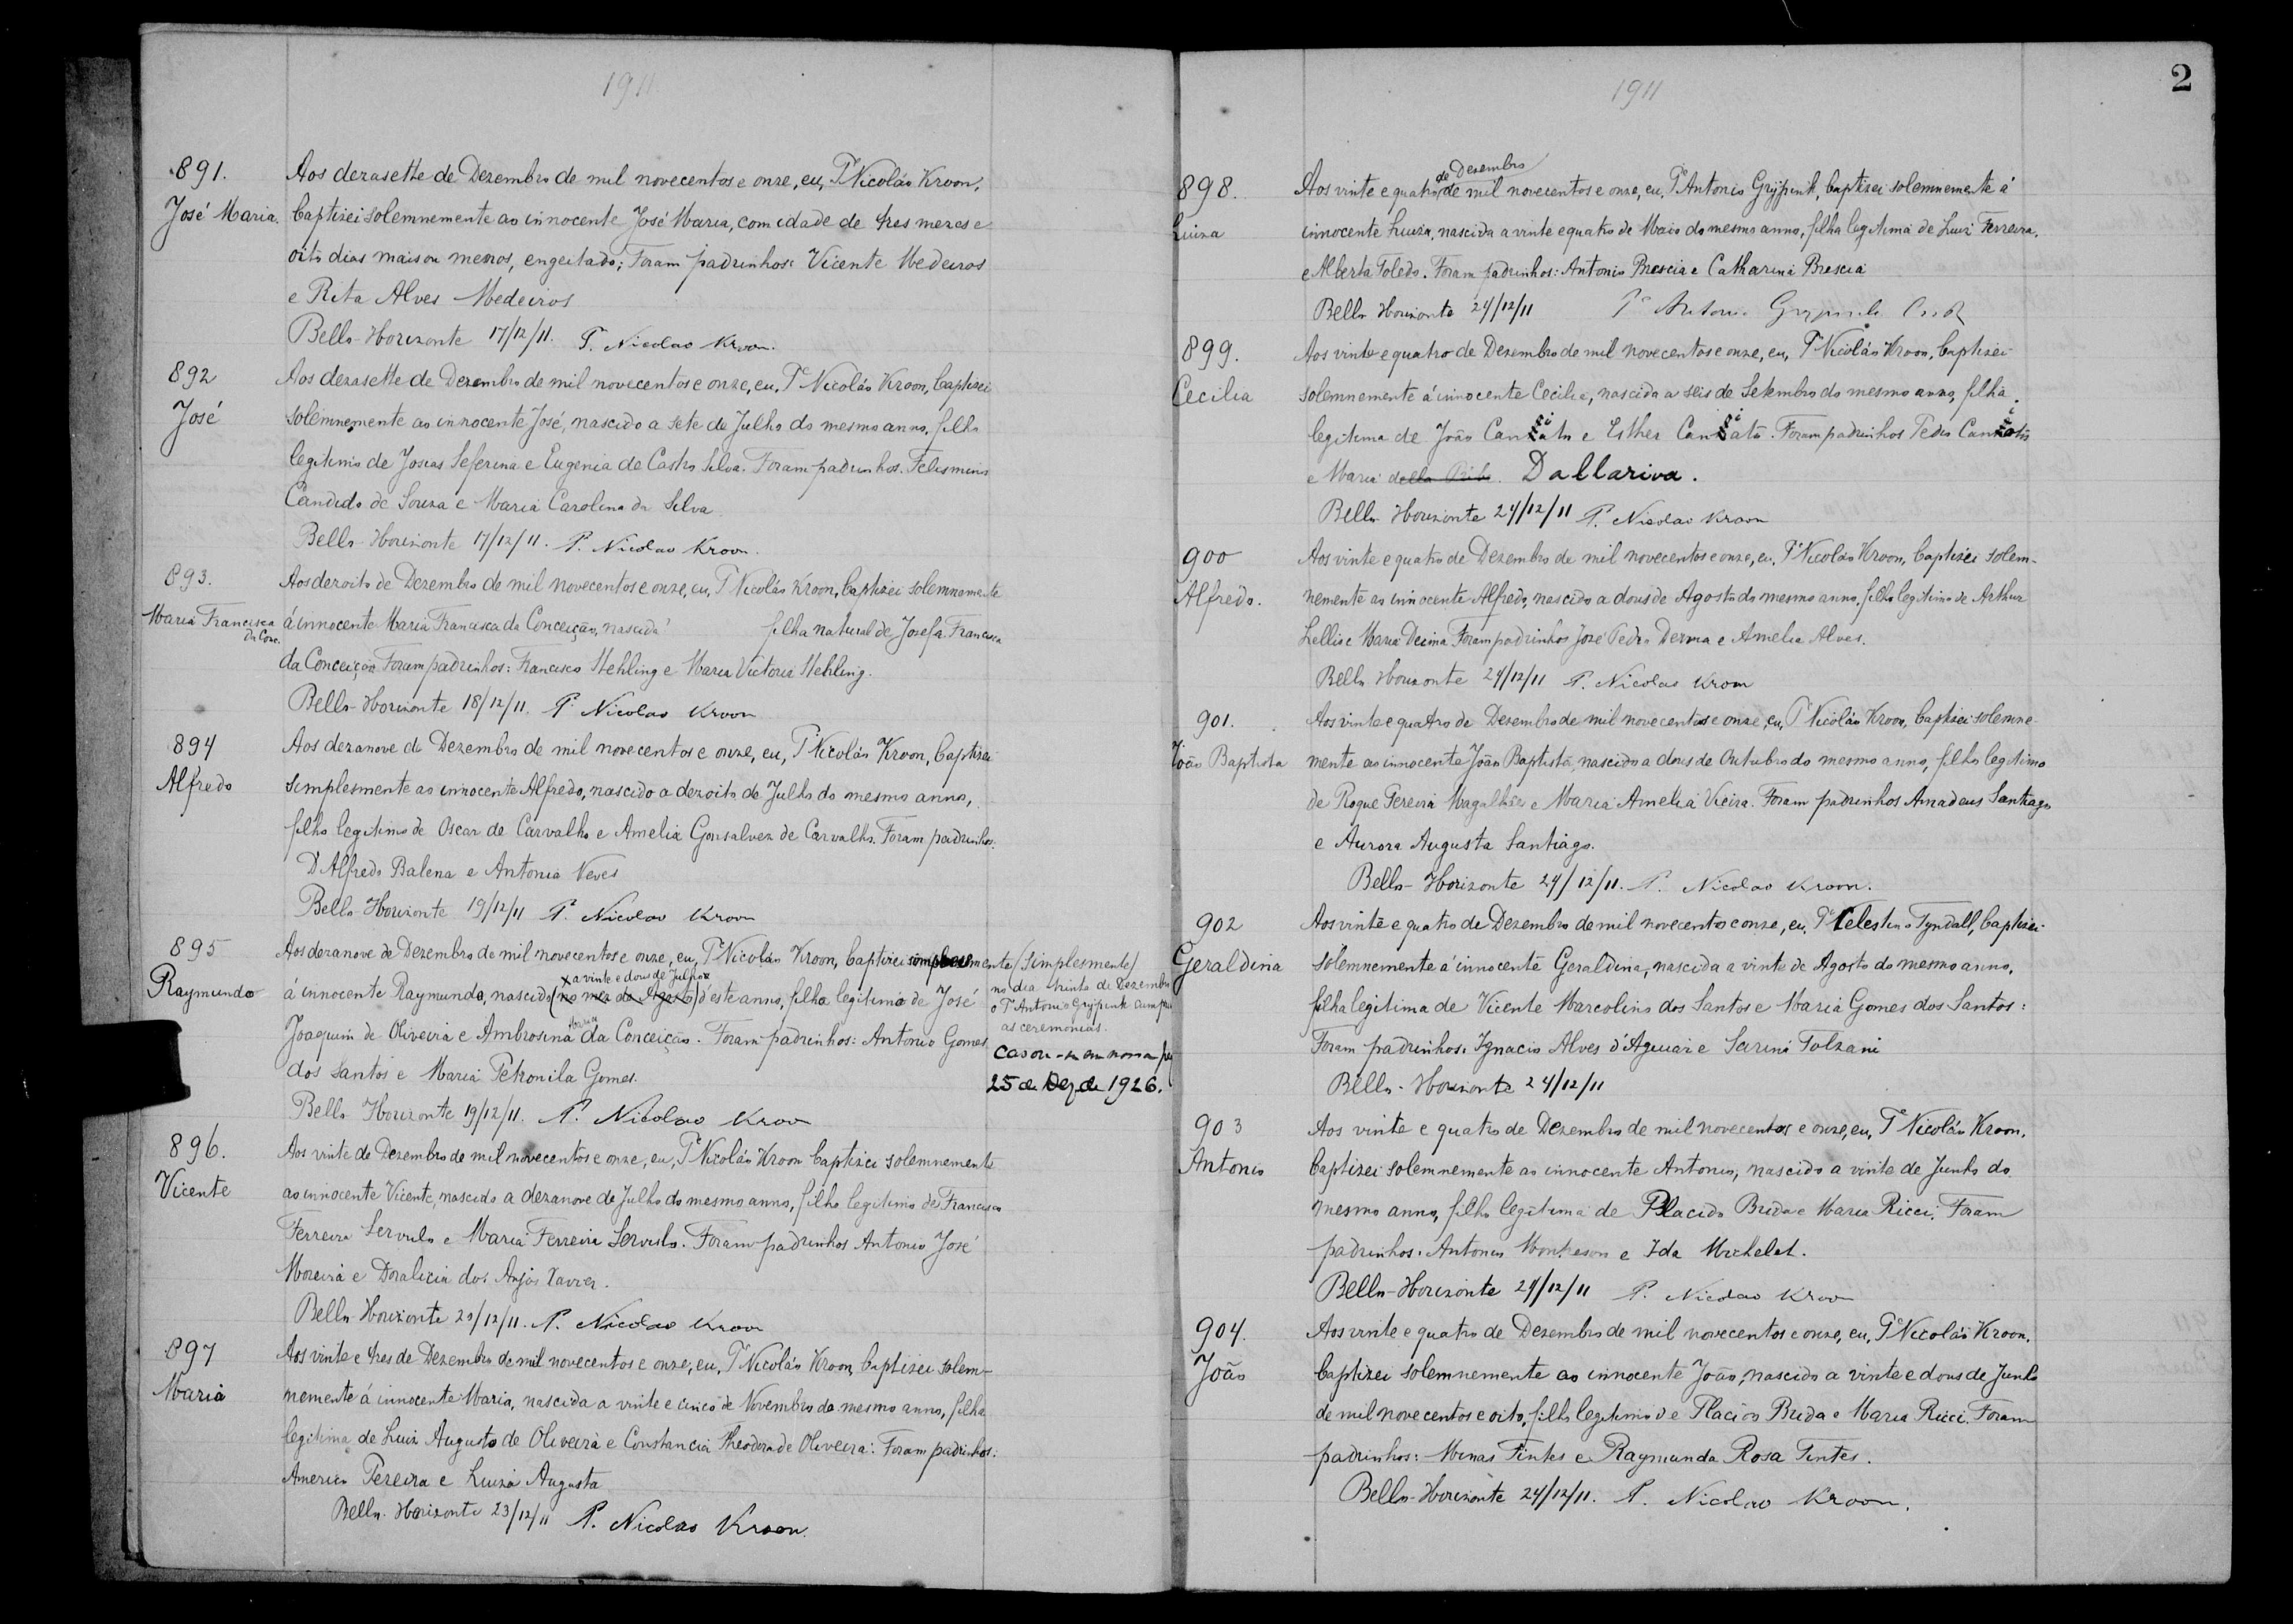 1911
891.
José Maria.
Aos dezasette de Dezembro de mil novecentos e onze, eu, Pe Nicoláo Kroon,
baptizei solemnemente ao innocente José Maria, com idade de tres mezes e
oito dias mais ou menos, engeitado; Foram padrinhos: Vicente Medeiros
e Rita Alves Medeiros
Bello-Horizonte 17/12/11. P. Nicolao Kroon.
892
José
Aos dezasette de Dezembro de mil novecentos e onze, eu, Pe Nicoláo Kroon, baptizei
solemnemente ao innocente José, nascido a sete de Julho do mesmo anno, filho
legitimo de Josias Seferina e Eugenia de Castro Silva. Foram padrinhos. Felismino
Candido de Souza e Maria Carolina da Silva
Bello-Horizonte 17/12/11. P. Nicolao Kroon.
893.
Maria Francisca
da Conc.
Aos dezoito de Dezembro de mil novecentos e onze, eu, Pe Nicoláo Kroon, baptizei solemnemente
á innocente Maria Francisca da Conceição, nascida filha natural de Josefa Francisca
da Conceição Foram padrinhos: Francisco Stehling e Maria Victoria Stehling.
Bello-Horizonte 18/12/11. P. Nicolao Kroon
894
Alfredo
Aos dezanove de Dezembro de mil novecentos e onze, eu, Pe Nicoláo Kroon, baptizei
simplesmente ao innocente Alfredo, nascido a dezoito de Julho do mesmo anno,
filho legitimo de Oscar de Carvalho e Amelia Gonsalvez de Carvalho. Foram padrinhos:
Dr Alfredo Balena e Antonia Neves
Bello-Horizonte 19/12/11 P. Nicolao Kroon
895
Raymundo
Aos dezanove de Dezembro de mil novecentos e onze, eu, Pe Nicoláo Kroon, baptizei simplesmente (simplesmente)
x a vinte e dous de Julho x
á innocente Raymundo, nascido (no mez de Agosto) d'este anno, filho legitimo de José
Maria
Joaquim de Oliveira e Ambrosina da Conceição. Foram padrinhos: Antonio Gomes
dos Santos e Maria Petronila Gomes.
Bello Horizonte 19/12/11. P. Nicolao Kroon
no dia trinta de Dezembro
o Pe Antonio Grÿpink
as ceremonias.
Casou-se em nossa
25 de Dez. de 1926.
896.
Vicente
Aos vinte de Dezembro de mil novecentos e onze, eu, Pe Nicoláo Kroon baptizei solemnemente
ao innocente Vicente, nascido a dezanove de Julho do mesmo anno, filho legitimo de Francisco
Ferreira Servulo e Maria Ferreira Servulo. Foram padrinhos Antonio José
Moreira e Doralicia dos Anjos Xavier.
Bello-Horizonte 20/12/11. P. Nicolao Kroon
897
Maria
Aos vinte e tres de Dezembro de mil novecentos e onze, eu, Pe Nicoláo Kroon, baptizei solem-
nemente á innocente Maria, nascida a vinte e cinco de Novembro do mesmo anno, filha
legitima de Luiz Augusto de Oliveira e Constancia Theodora de Oliveira. Foram padrinhos:
Americo Pereira e Luiza Augusta
Bello-Horizonte 23/12/11 P. Nicolao Kroon.
1911
2
898.
Luiza
de Dezembro
Aos vinte e quatro de mil novecentos e onze, eu, Pe Antonio Grÿpink, baptizei solemnemente á
innocente Luiza, nascida a vinte e quatro de Maio do mesmo anno, filha legitima de Luiz Ferreira
e Alberta Toledo. Foram padrinhos: Antonio Brescia e Catharina Brescia
Bello Horizonte 24/12/11 Pe Antonio Grÿpink
899.
Cecilia
Aos vinte e quatro de Dezembro de mil novecentos e onze, eu, Pe Nicoláo Kroon, baptizei
solemnemente á innocente Cecilia, nascida a seis de Setembro do mesmo anno, filha
legitima de João e Esther Foram padrinhos Pedro
e Maria della Dallariva.
Bello Horizonte 24/12/11 P. Nicolao Kroon
900
Alfredo.
Aos vinte e quatro de Dezembro de mil novecentos e onze, eu, Pe Nicoláo Kroon, baptizei solem-
nemente ao innocente Alfredo, nascido a dous de Agosto do mesmo anno, filho legitimo de Arthur
Lellis e Maria Decima Foram padrinhos José Pedro Derma e Amelia Alves.
Bello Horizonte 24/12/11 P. Nicolao Kroon
901.
João Baptista
Aos vinte e quatro de Dezembro de mil novecentos e onze, eu, Pe Nicoláo Kroon, baptizei solemne-
mente ao innocente João Baptista, nascido a dous de Outubro do mesmo anno, filho legitimo
de Roque Pereira Magalhães e Maria Amelia Vieira. Foram padrinhos Amadeus Santiago
e Aurora Augusta Santiago.
Bello-Horizonte 24/12/11. P. Nicolao Kroon.
902
Geraldina
Aos vinte e quatro de Dezembro de mil novecentos e onze, eu, Pe Celestino Tyndall, baptizei
solemnemente á innocente Geraldina, nascida a vinte de Agosto do mesmo anno,
filha legitima de Vicente Marcolino dos Santos e Maria Gomes dos Santos:
Foram padrinhos: Ignacio Alves d'Aguiar e Sarini Tolzani
Bello-Horizonte 24/12/11
903
Antonio
Aos vinte e quatro de Dezembro de mil novecentos e onze, eu, Pe Nicoláo Kroon,
baptizei solemnemente ao innocente Antonio, nascido a vinte de Junho do
mesmo anno, filho legitimo de Placido Brida e Maria Ricci. Foram
padrinhos: Antonio Montreson e Ida Michelet.
Bello-Horizonte 24/12/11 P. Nicolao Kroon
904.
João
Aos vinte e quatro de Dezembro de mil novecentos e onze, eu, Pe Nicoláo Kroon,
baptizei solemnemente ao innocente João, nascido a vinte e dous de Junho
de mil novecentos e oito, filho legitimo de Placido Brida e Maria Ricci. Foram
padrinhos: Minas Tintes e Raymunda Rosa Tintes.
Bello-Horizonte 24/12/11. P. Nicolao Kroon.